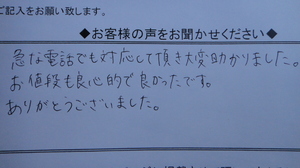 ご記入をお願い致します。
◆お客様の声をお聞かせください◆
急な電話でも対応して頂き大変助かりました。
お値段も良心的で良かったです。
ありがとうございました。